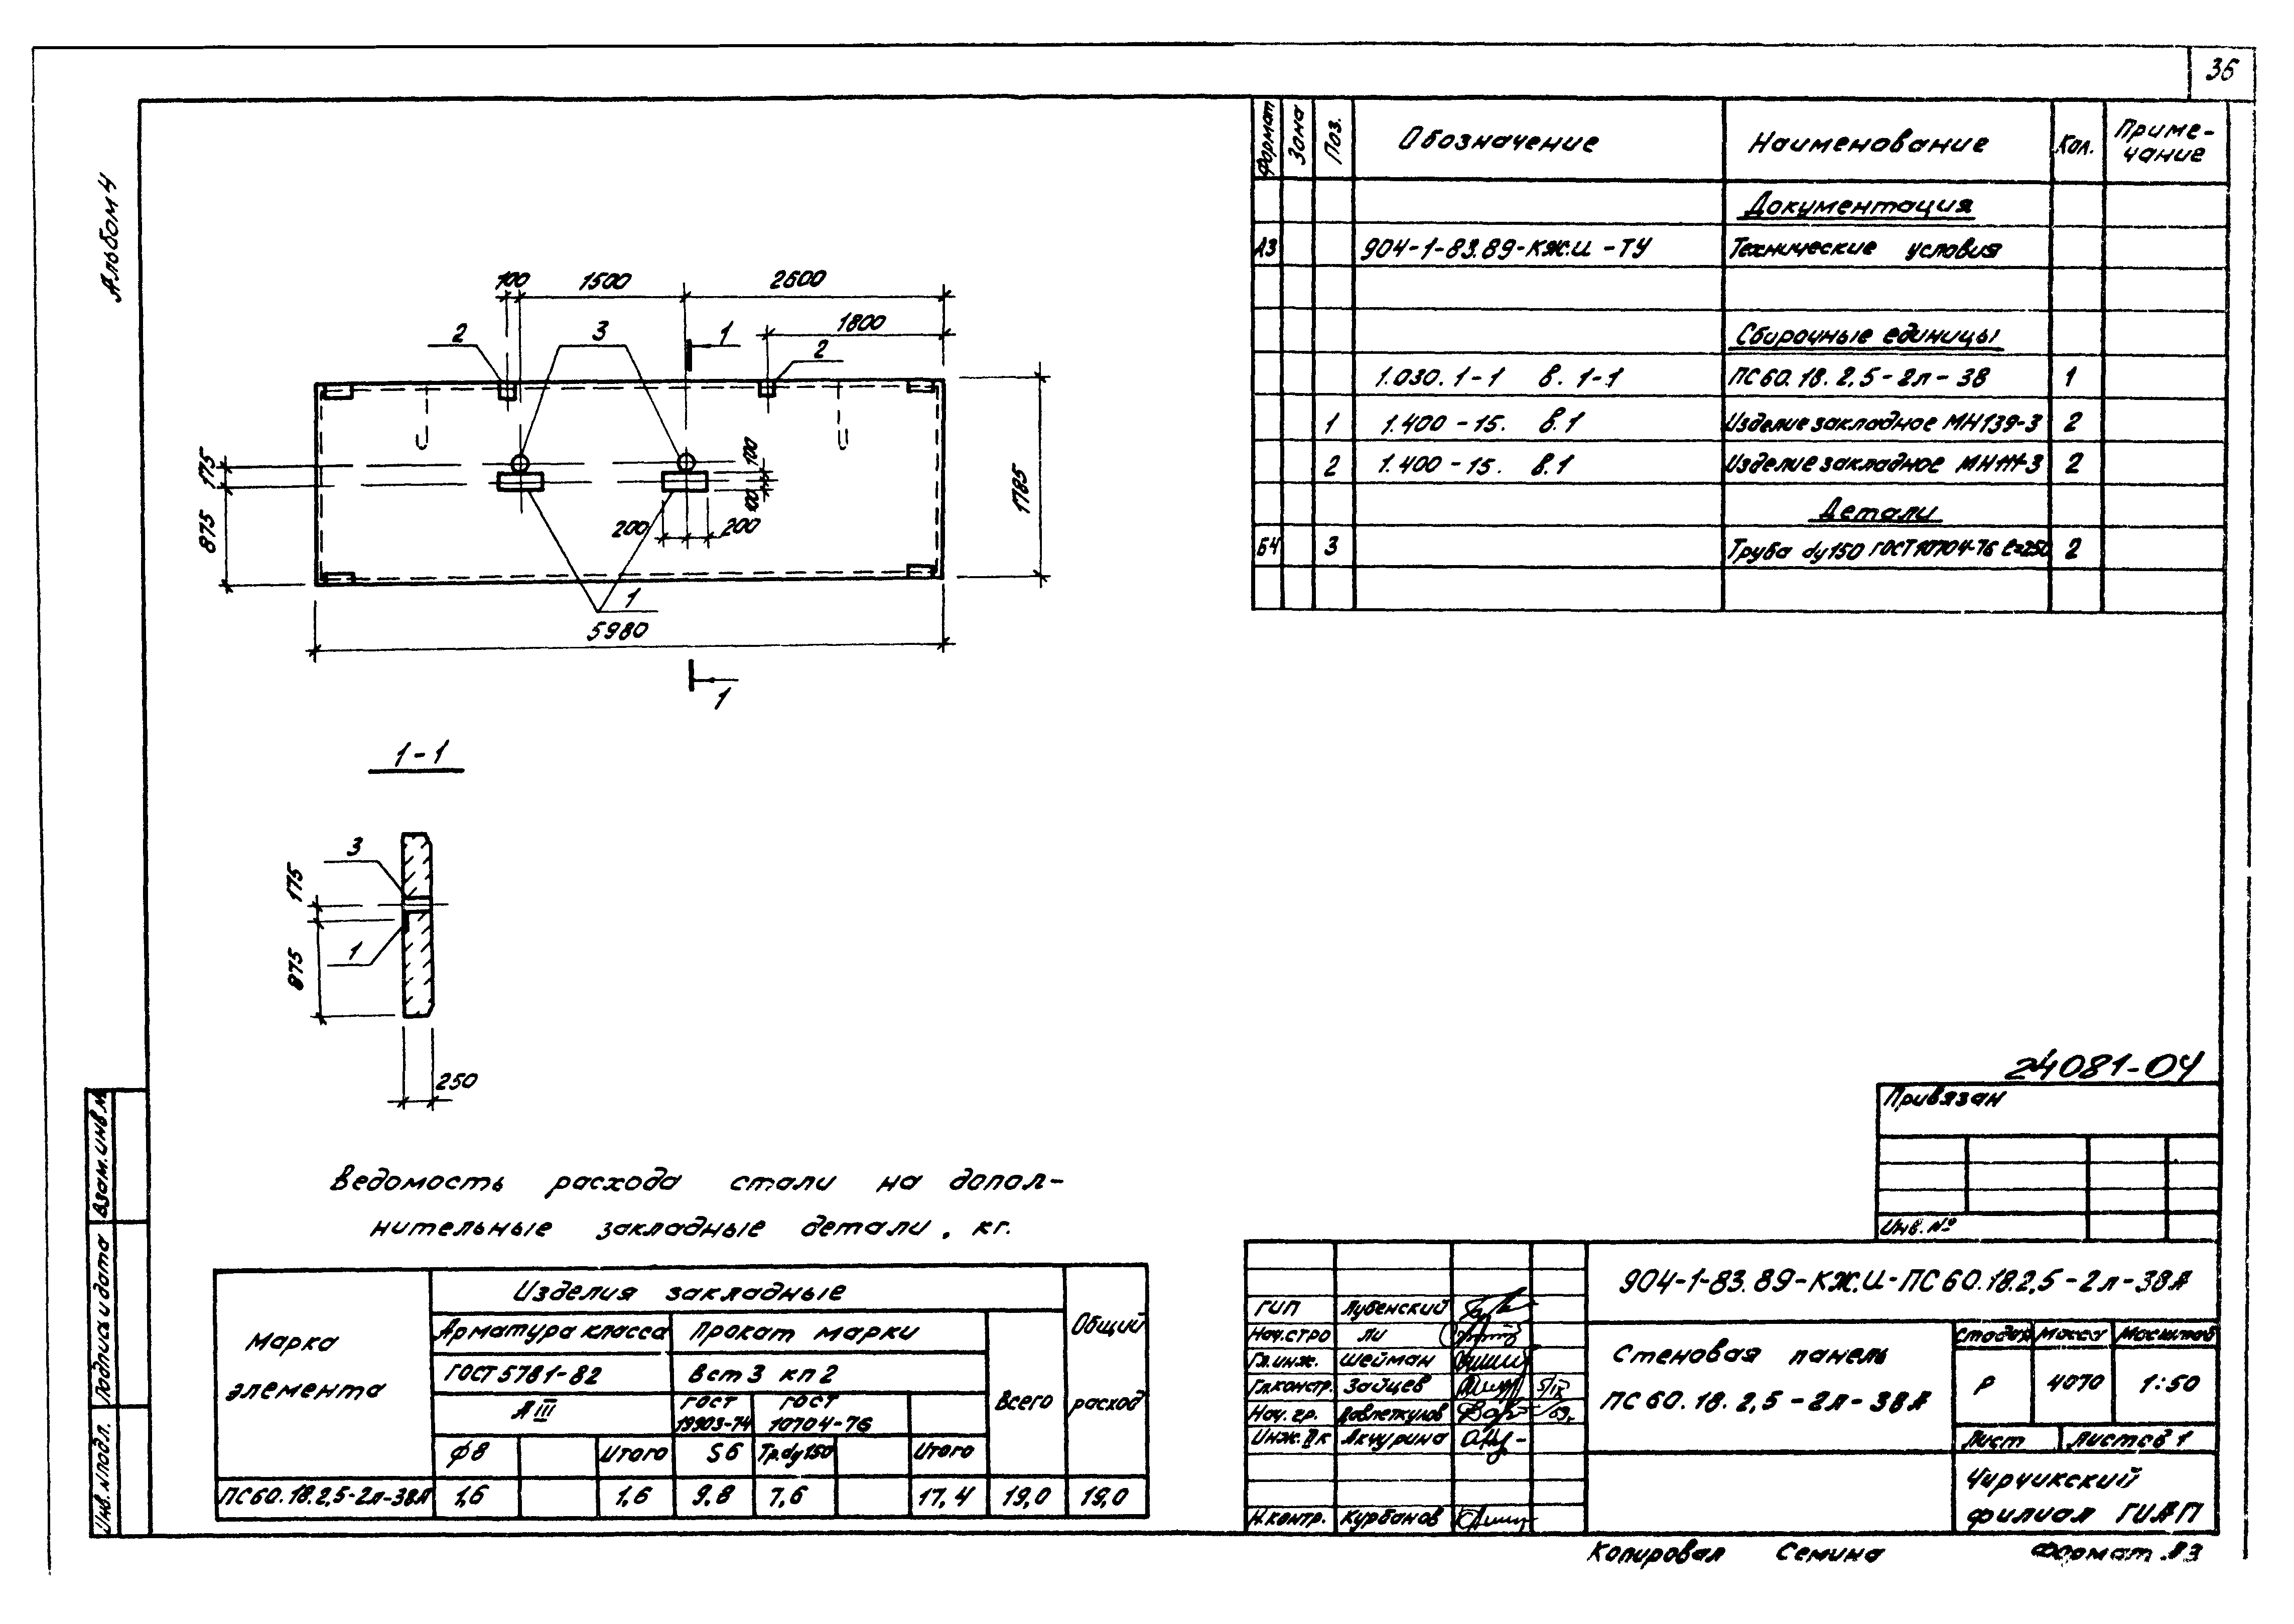 36
Альбом 4
Формат Зона Поз. Обозначение Наименование Кол. Приме-
чание
Документация
А3 904-1-83.89-КЖ.И-ТУ Технические условия
Сборочные единицы
1.030.1-1 в. 1-1 ПС60.18.2,5-2л-38 1
1 1.400-15. в.1 Изделие закладное МН139-3 2
2 1.400-15. в.1 Изделие закладное МН111-3 2
Детали
Б4 3 Труба dу150 ГОСТ10704-76 ℓ=250 2
100 1500 2600
1800
2 3 1 2
175
875
100
100
200 200
1785
1
5980
1
1-1
3
175
1
875
250
24081-04
Привязан
Инв. №
Ведомость расхода стали на допол-
нительные закладные детали, кг.
Марка
элемента
Изделия закладные
Общий
расход
Арматура класса Прокат марки
Всего
ГОСТ 5781-82 Вст3 кп2
АIII ГОСТ
19903-74 ГОСТ
10704-76
ф8 Итого S6 Тр.dу150 Итого
ПС60.18.2,5-2л-38А 1,6 1,6 9,8 7,6 17,4 19,0 19,0
904-1-83.89-КЖ.И-ПС60.18.2,5-2л-38А
ГИП Лубенский
Нач.стро Ли
Гл.инж. Шейман
Гл.констр. Зайцев 5/IX
Нач. гр. Давлеткулов 89г.
Инж. IIк Акчурина
Н.контр. Курбанов
Стеновая панель
ПС60.18.2,5-2л-38А
Стадия Масса Масштаб
Р 4070 1:50
Лист Листов 1
Чирчикский
филиал ГИАП
Копировал Семина Формат А3
Взам. инв №
Подпись и дата
Инв. № подл.